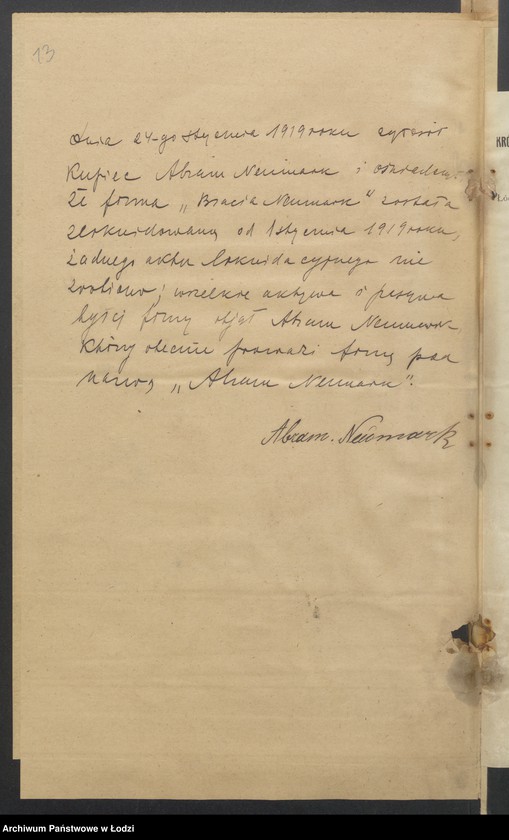 13
Dnia 24-go stycznia 1919 roku zgłosił
Kupiec Abram Neumark i oświadczył
że firma „Bracia Neumark" została
zlikwidowaną od 1 stycznia 1919 roku,
żadnego aktu likwidacyjnego nie
zrobiono; wszelkie aktywa i pasywa
byłej firmy objął Abram Neumark
który obecnie prowadzi firmę pod
nazwą „Abram Neumark".
Abram. Neumark
KRO
Archiwum Państwowe w Łodzi